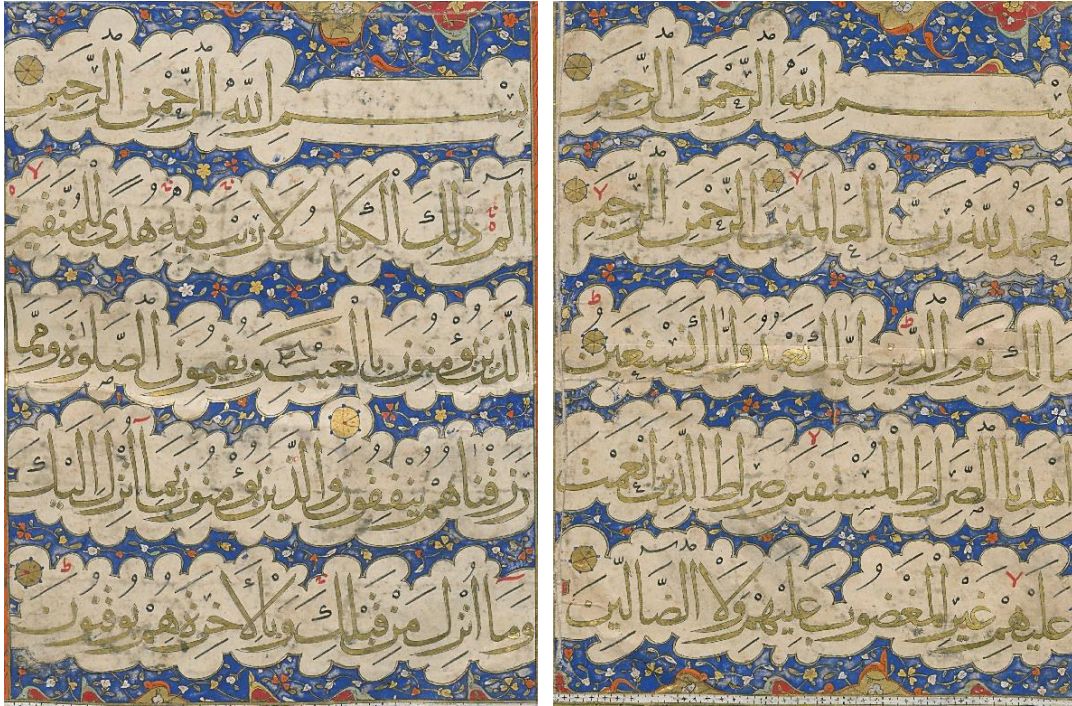 بِسْمِ اللّٰهِ الرَّحْمٰنِ الرَّحِيمِ
الْحَمْدُ لِلّٰهِ رَبِّ الْعَالَمِينَ الرَّحْمٰنِ الرَّحِيمِ
مَالِكِ يَوْمِ الدِّينِ اِيَّاكَ نَعْبُدُ وَاِيَّاكَ نَسْتَعِينُ
اِهْدِنَا الصِّرَاطَ الْمُسْتَقِيمَ صِرَاطَ الَّذِينَ اَنْعَمْتَ
عَلَيْهِمْ غَيْرِ الْمَغْضُوبِ عَلَيْهِمْ وَلَا الضَّالِّينَ
بِسْمِ اللّٰهِ الرَّحْمٰنِ الرَّحِيمِ
الٓمٓ ذٰلِكَ الْكِتَابُ لَا رَيْبَ فِيهِ هُدًى لِلْمُتَّقِينَ
الَّذِينَ يُؤْمِنُونَ بِالْغَيْبِ وَيُقِيمُونَ الصَّلٰوةَ وَمِمَّا
رَزَقْنَاهُمْ يُنْفِقُونَ وَالَّذِينَ يُؤْمِنُونَ بِمَا اُنْزِلَ اِلَيْكَ
وَمَا اُنْزِلَ مِنْ قَبْلِكَ وَبِالْاٰخِرَةِ هُمْ يُوقِنُونَ